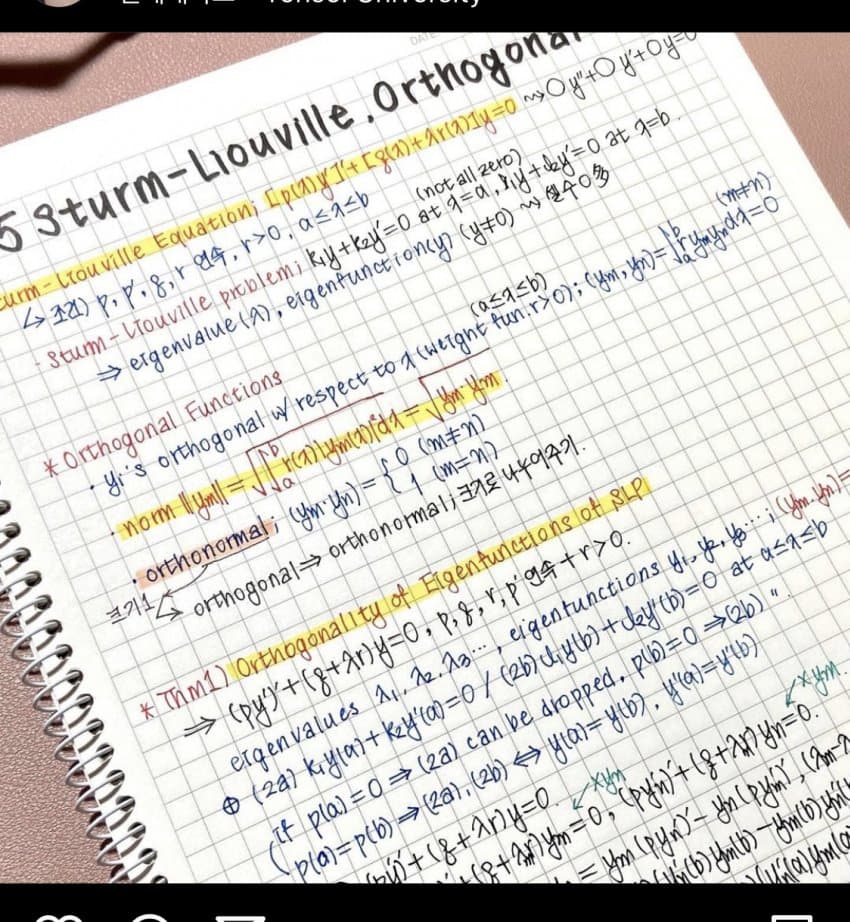 Yonsei University
5 Sturm-Liouville, Orthogonal
Sturm-Liouville Equation; [p(x)y']'+[q(x)+λr(x)]y=0 ⇝ ○y''+○y'+○y=0
↳ 조건) p, p', q, r 연속, r>0, a≤x≤b
(not all zero)
· Sturm-Liouville problem; k₁y+k₂y'=0 at x=a, l₁y+l₂y'=0 at x=b.
⇒ eigenvalue(λ), eigenfunction(y) (y≠0) ⇝ 실수 0 多
* Orthogonal Functions
(a≤x≤b) (m≠n)
· yᵢ's orthogonal w/ respect to r (weight fun. r>0); (ym, yn)=∫ₐᵇ r ym yn dx=0
· norm ||ym||=√∫ₐᵇ r(x)[ym(x)]²dx=√ym·ym.
· orthonormal; (ym·yn)={0 (m≠n)
1 (m=n)
크기1 ↳ orthogonal⇒orthonormal; 크기로 나누어주기.
* Thm1) Orthogonality of Eigenfunctions of SLP
⇒ (py')'+(q+λr)y=0, p, q, r, p' 연속+r>0.
eigenvalues λ₁, λ₂, λ₃..., eigenfunctions y₁, y₂, y₃...; (ym·yn)=
⊕ (2a) k₁y(a)+k₂y'(a)=0 / (2b) l₁y(b)+l₂y'(b)=0 at a≤x≤b
(if p(a)=0 ⇒ (2a) can be dropped, p(b)=0 ⇒ (2b) "
p(a)=p(b) ⇒ (2a), (2b) ⇔ y(a)=y(b), y'(a)=y'(b)
(py')'+(q+λr)y=0. ×yn ×ym
+(q+λr)ym=0, (pyn')'+(q+λr)yn=0.
= ym(pyn')'-yn(pym')', (λm-λ
yn'(b)ym(b)-ym'(b)yn(b)
yn'(a)ym(a)